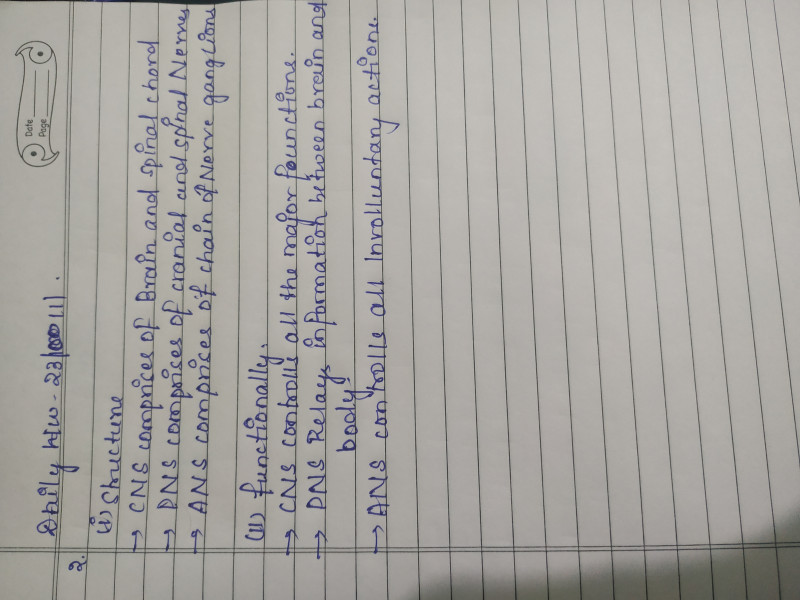 Date
Page
Daily H.W - 23/11.
2.
(i) Structure
→ CNS comprices of Brain and spinal chord
→ PNS comprices of cranial and spinal Nerves
→ ANS comprices of chain of Nerve ganglions
(II) functionally.
→ CNS controlls all the major founctions.
→ PNS Relays information between brain and
body.
→ ANS controlls all Invrolluntary actions.